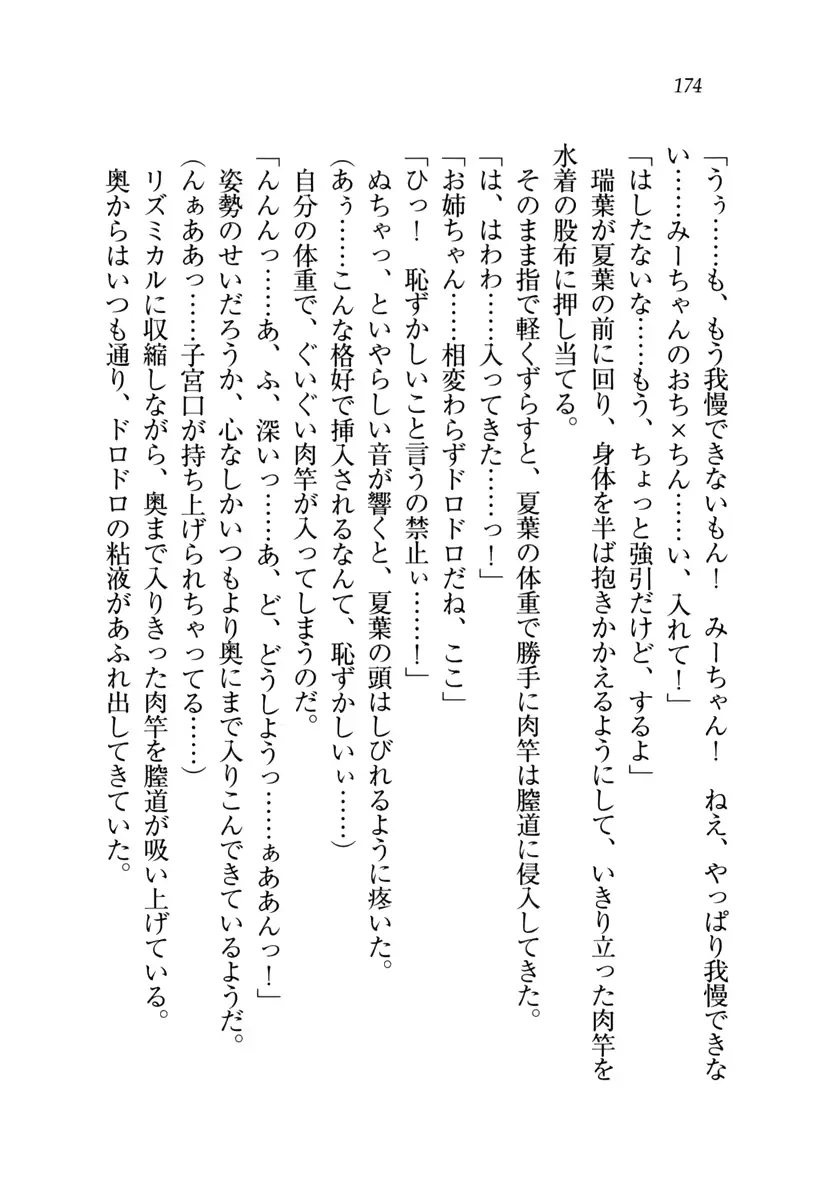 174
「うぅ……も、もう我慢できないもん！　みーちゃん！　ねえ、やっぱり我慢できな
い……みーちゃんのおち×ちん……い、入れて！」
「はしたないな……もう、ちょっと強引だけど、するよ」
瑞葉が夏葉の前に回り、身体を半ば抱きかかえるようにして、いきり立った肉竿を
水着の股布に押し当てる。
そのまま指で軽くずらすと、夏葉の体重で勝手に肉竿は膣道に侵入してきた。
「は、はわわ……入ってきた……っ！」
「お姉ちゃん……相変わらずドロドロだね、ここ」
「ひっ！　恥ずかしいこと言うの禁止ぃ……！」
ぬちゃっ、といやらしい音が響くと、夏葉の頭はしびれるように疼いた。
（あぅ……こんな格好で挿入されるなんて、恥ずかしいぃ……）
自分の体重で、ぐいぐい肉竿が入ってしまうのだ。
「んんんっ……あ、ふ、深いっ……あ、ど、どうしようっ……ぁああんっ！」
姿勢のせいだろうか、心なしかいつもより奥にまで入りこんできているようだ。
（んぁああっ……子宮口が持ち上げられちゃってる……）
リズミカルに収縮しながら、奥まで入りきった肉竿を膣道が吸い上げている。
奥からはいつも通り、ドロドロの粘液があふれ出してきていた。